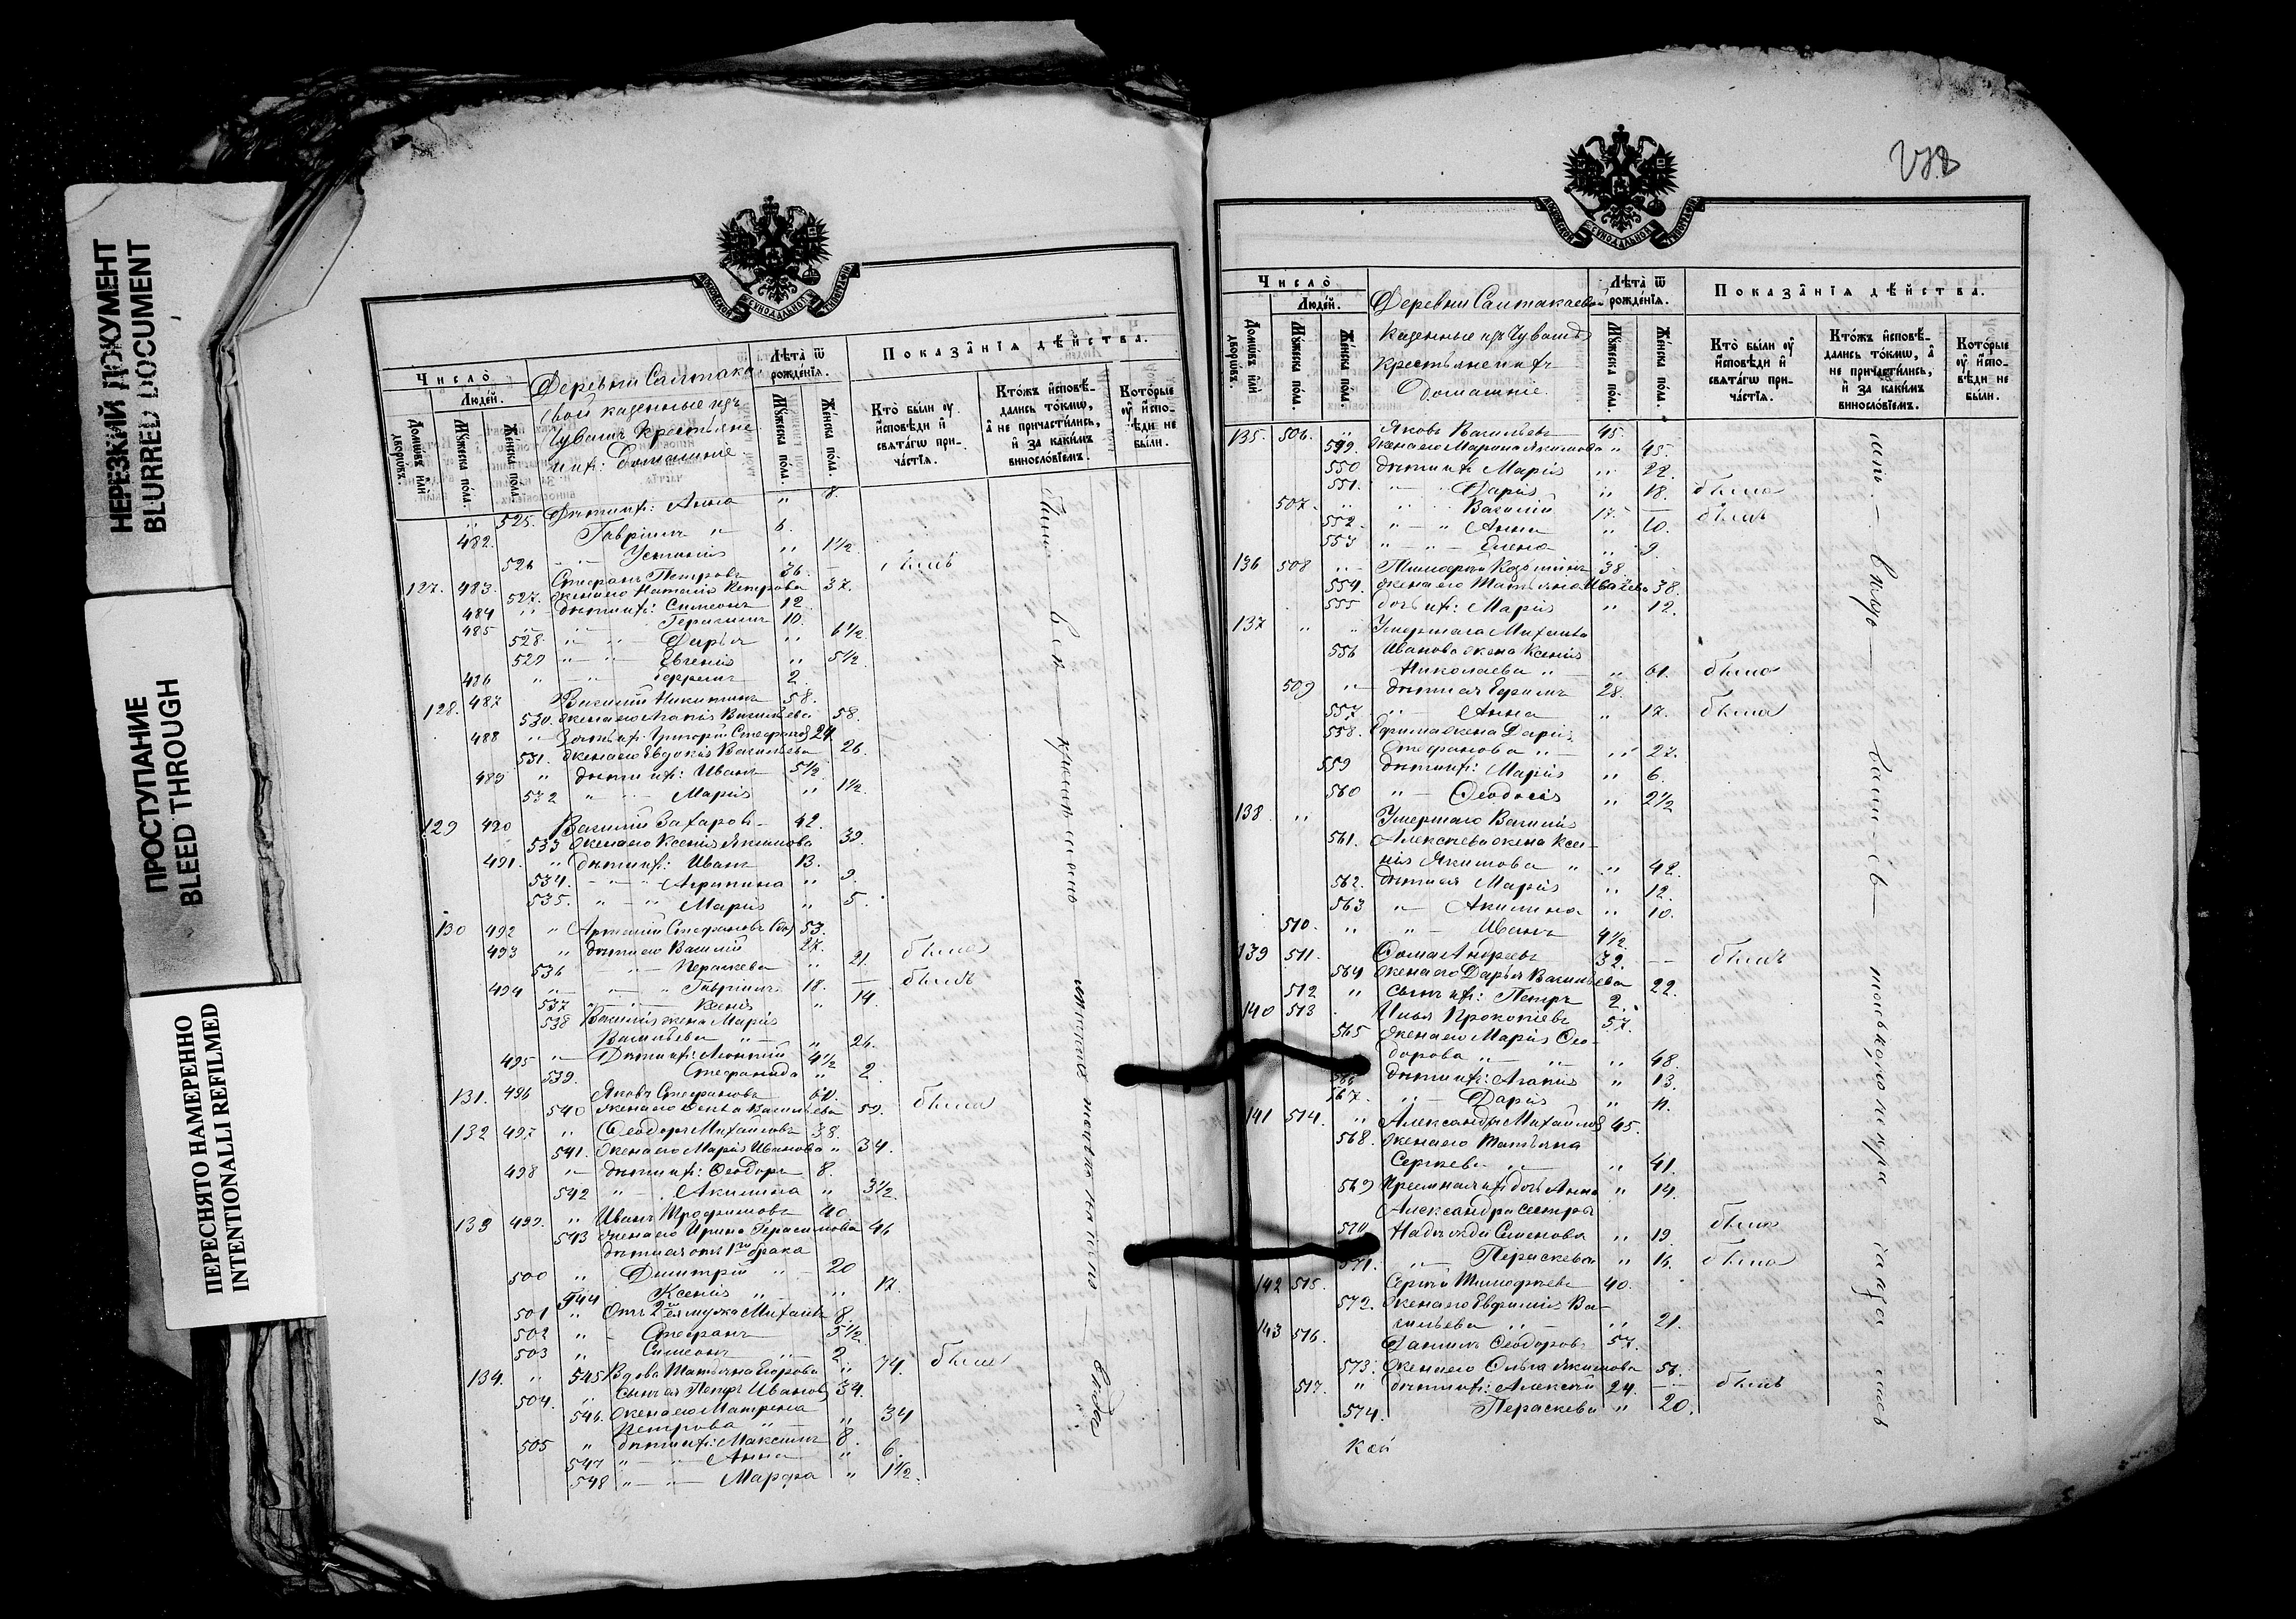 НЕРЕЗКИЙ ДОКУМЕНТ
BLURRED DOCUMENT
ПРОСТУПАНИЕ
BLEED THROUGH
ПЕРЕСНЯТО НАМЕРЕННО
INTENTIONALLI REFILMED
МОСКОВСКОЙ СѴНОДАЛЬНОЙ ТИПОГРАФІИ
Число
Людей.
Домѡвъ или дворѡвъ.
Мꙋжеска пола.
Женска пола.
Деревни Салтака-
евой казенные изъ
Чувашъ крестьяне
и ихъ: домашніе
Лѣта ѿ рожденїѧ.
Мꙋжеска пола.
Женска пола.
Показанїѧ дѣйства.
Кто были ᲂу исповѣди и свѧтагѡ причастїѧ.
Ктожъ исповѣдались токмѡ, а не причастились, и за какимъ винословїемъ.
Которые ᲂу исповѣди не были.
525. Дѣти ихъ: Анна " 8.
482. Гавріилъ " 6.
526 Устинія " 1½
127. 483. Стефанъ Петровъ 36. — былъ
527. Жена его Наталія Петрова 37.
484 " дѣти ихъ: Симеонъ 12.
485 Герасимъ 10.
528. " — Дарья " 6½
529 " — Евгенія " 5½
486 " — Ефремъ 2
128. 487 Василій Никитинъ 58.
530. Жена его Агапія Васильева 58.
488 " Зять ихъ Григорій Стефановъ 27
531. Жена его Евдокія Васильева 26.
489 " дѣти ихъ: Иванъ 5½
532 " — Марія " 1½.
129 490 Василій Захаровъ 42.
533 Жена его Ксенія Якимова 39.
491. " дѣти ихъ: Иванъ 13.
534. — " — Агрипина " 9.
535. " — " Марія " 5.
130 492 " Артемій Стефановъ 53.
493 " дѣти его Василій 27.
536 " — Пераскева " 21. была
494 " — Гавріилъ 18. — былъ
537 " — Ксенія " 14
538 Василія жена Марія
Васильева " — " 26.
495 " — Дѣти ихъ: Леонтій 4½
539. Стефанида " 2
131. 496 Яковъ Стефановъ 60.
540 Жена его Ѳекла Васильева 59. была
132 497 " Ѳеодоръ Михайловъ 38.
541. Жена его Марія Иванова " 34.
498 " — дѣти ихъ: Ѳеодоръ 8.
542 " — Акилина " 3½.
133 499. " Иванъ Трофимовъ 40
543 Жена его Ирина Герасимова 46
дѣти ея отъ 1го брака
500 " Димитрій " — 20
544 Ксенія " — " 17.
501 " Отъ 2го ея мужа Михаилъ 8.
502 " — Стефанъ 5½
503 " Симеонъ " — 2
134. " 545 Вдова Татьяна Егорова " 74. была
504. " Сынъ ея Петръ Ивановъ 34.
546. Жена его Матрена
Петрова " — " 34
505 " дѣти ихъ: Максимъ 8.
547 " — " Анна " 6.
548 " — " Марфа " 1½.
МОСКОВСКОЙ СѴНОДАЛЬНОЙ ТИПОГРАФІИ
Число
Людей.
Домѡвъ или дворѡвъ.
Мꙋжеска пола.
Женска пола.
Деревни Салтакаевой
казенные изъ Чувашъ
крестьяне и ихъ
домашніе.
Лѣта ѿ рожденїѧ.
Мꙋжеска пола.
Женска пола.
Показанїѧ дѣйства.
Кто были ᲂу исповѣди и свѧтагѡ причастїѧ.
Ктожъ исповѣдались токмѡ, а не причастились, и за какимъ винословїемъ.
Которые ᲂу исповѣди не были.
135. 506. " Яковъ Васильевъ 45.
549. Жена его Марина Якимова " 45.
550 дѣти ихъ Марія " 22.
551. " — Дарія " 18. была
507. " Василій 17. — былъ
552. " — " Анна " 10.
553 " — " — Елена " 9.
136 508 " — Тимофей 38.
554. Жена его Татьяна Иванова 38.
555 дочь ихъ: Марія " 12.
137 " " Умершаго Михаила
556 Иванова жена Ксенія
Николаева " — " 61. была
509 " — дѣти ея Ефремъ 28.
557. " — Анна " 17. была
558. Ефрема жена Дарія
Стефанова " — " 27.
559 дѣти ихъ: Марія " 6.
560 " — Ѳеодосія " 2½
138 " Умершаго Василія
561. Алексѣева жена Ксе-
нія Якимова " " 42.
562. дѣти ея Марія " 12.
563 " — Акилина " 10.
510. " " — Иванъ 4½
139 511. Ѳома Андреевъ 32. — былъ
564 Жена его Дарья Васильева 22.
512 " Сынъ ихъ: Петръ 2.
140 513 Илья Прокопіевъ 57.
565 Жена его Марія Ѳео-
дорова " — " 48.
566 дѣти ихъ: Агапія " 13.
567. " — Дарія " 11.
141 514. " Александръ Михайловъ 45.
568. Жена его Татьяна
Сергѣева " " 41.
569 Пріемная ихъ дочь Анна " 14.
Александра сестры
570 Надежда Семенова " 19. была
571. " — Пераскева " 16. была
142 515. Сергѣй Тимофеевъ 40.
572. Жена его Евфимія Ва-
сильева " — " 21.
143 516. Даніилъ Ѳеодоровъ 57.
573. Жена его Ольга Якимова 56.
517. " дѣти ихъ: Алексѣй 24. — былъ
574. Пераскева " 20.